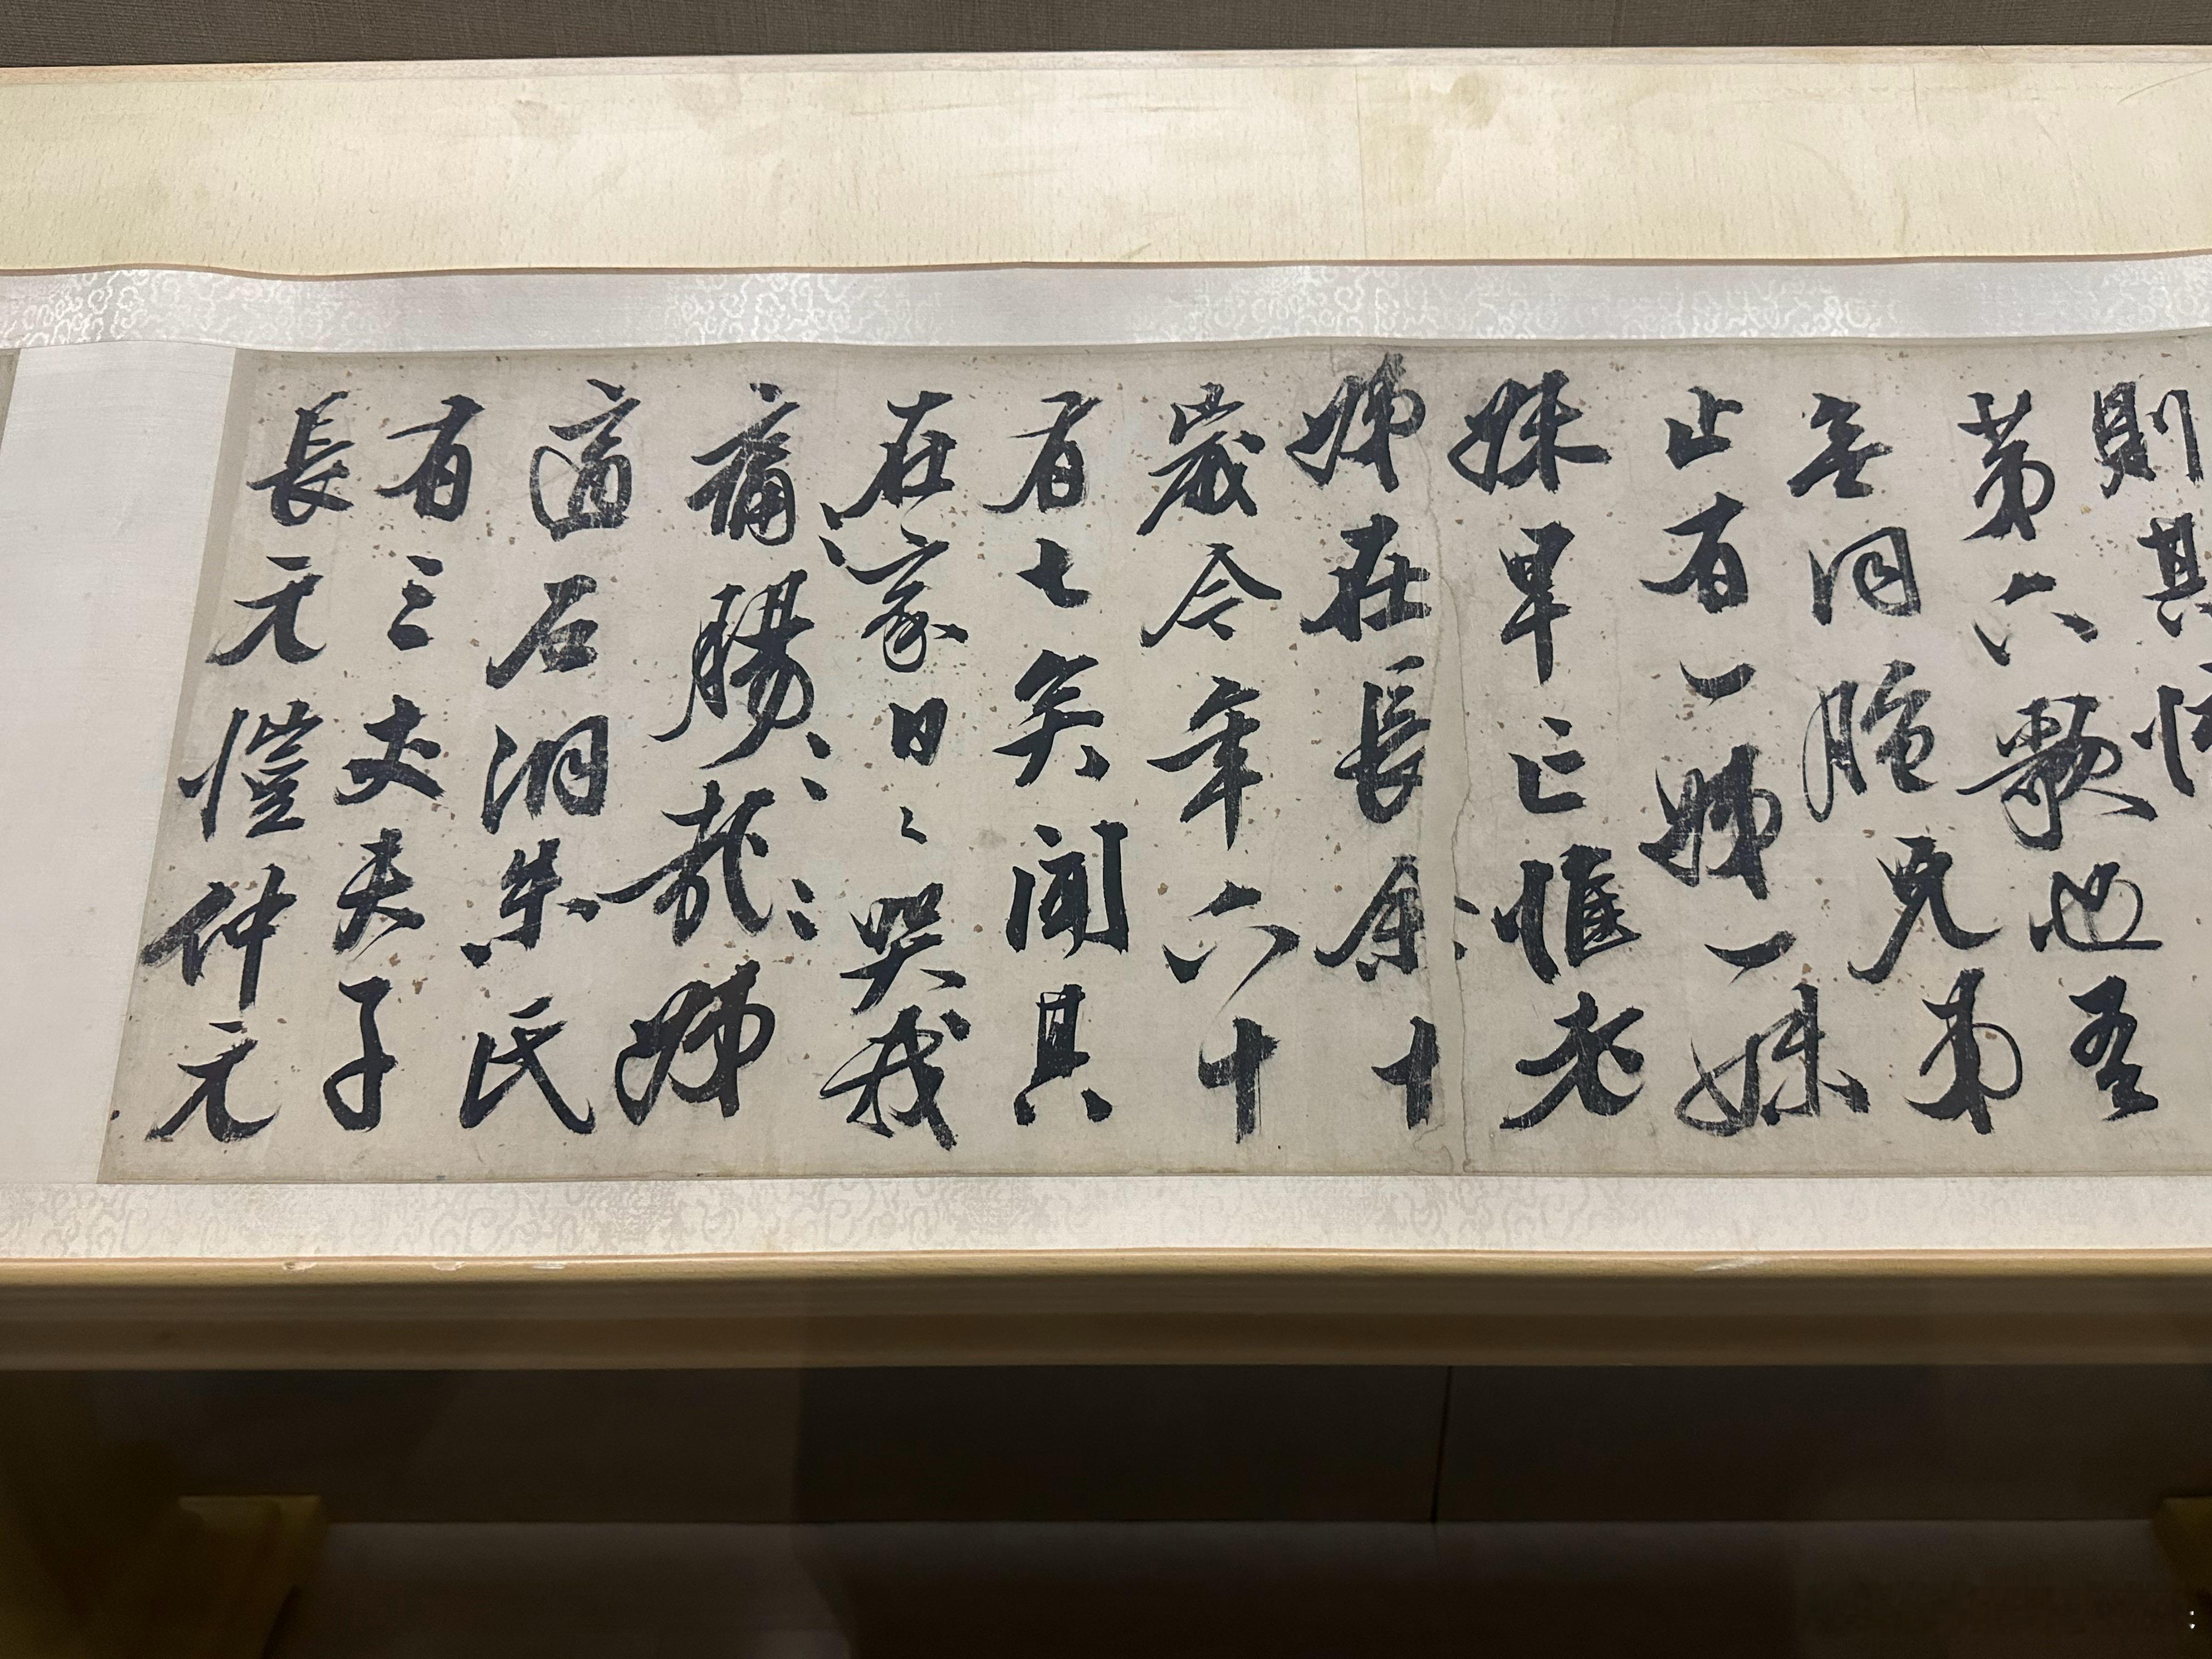 則其
第六歌也吾
無同胞兄弟
止有一姊一妹
妹早亡惟老
姊在長余十
歲今年六十
有七矣聞其
在家日〻哭我
痛腸哉姊
適石洞朱氏
有三丈夫子
長元愷仲元